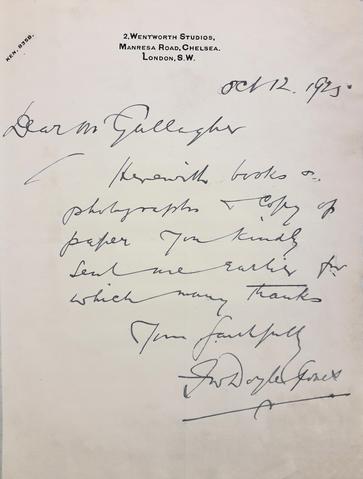 KEN. 8358.
2, WENTWORTH STUDIOS,
MANRESA ROAD, CHELSEA.
LONDON, S.W.
Oct 12. 1925.
Dear Mr Gallagher
Herewith books &
photographs & copy of
paper you kindly
sent me earlier for
which many thanks
Yours faithfully
Doyle Jones